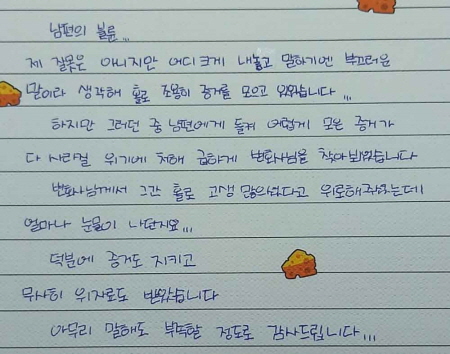 남편의 불륜,,,
제 잘못은 아니지만 어디 크게 내놓고 말하기엔 부끄러운
말이라 생각해 홀로 조용히 증거를 모으고 있었습니다,,,
하지만 그러던 중 남편에게 들켜 어렵게 모은 증거가
다 사라질 위기에 처해 급하게 변호사님을 찾아뵈었습니다
변호사님께서 그간 홀로 고생 많으셨다고 위로해주셨는데
얼마나 눈물이 나던지요,,,
덕분에 증거도 지키고
무사히 위자료도 받았습니다
아무리 말해도 부족할 정도로 감사드립니다,,,